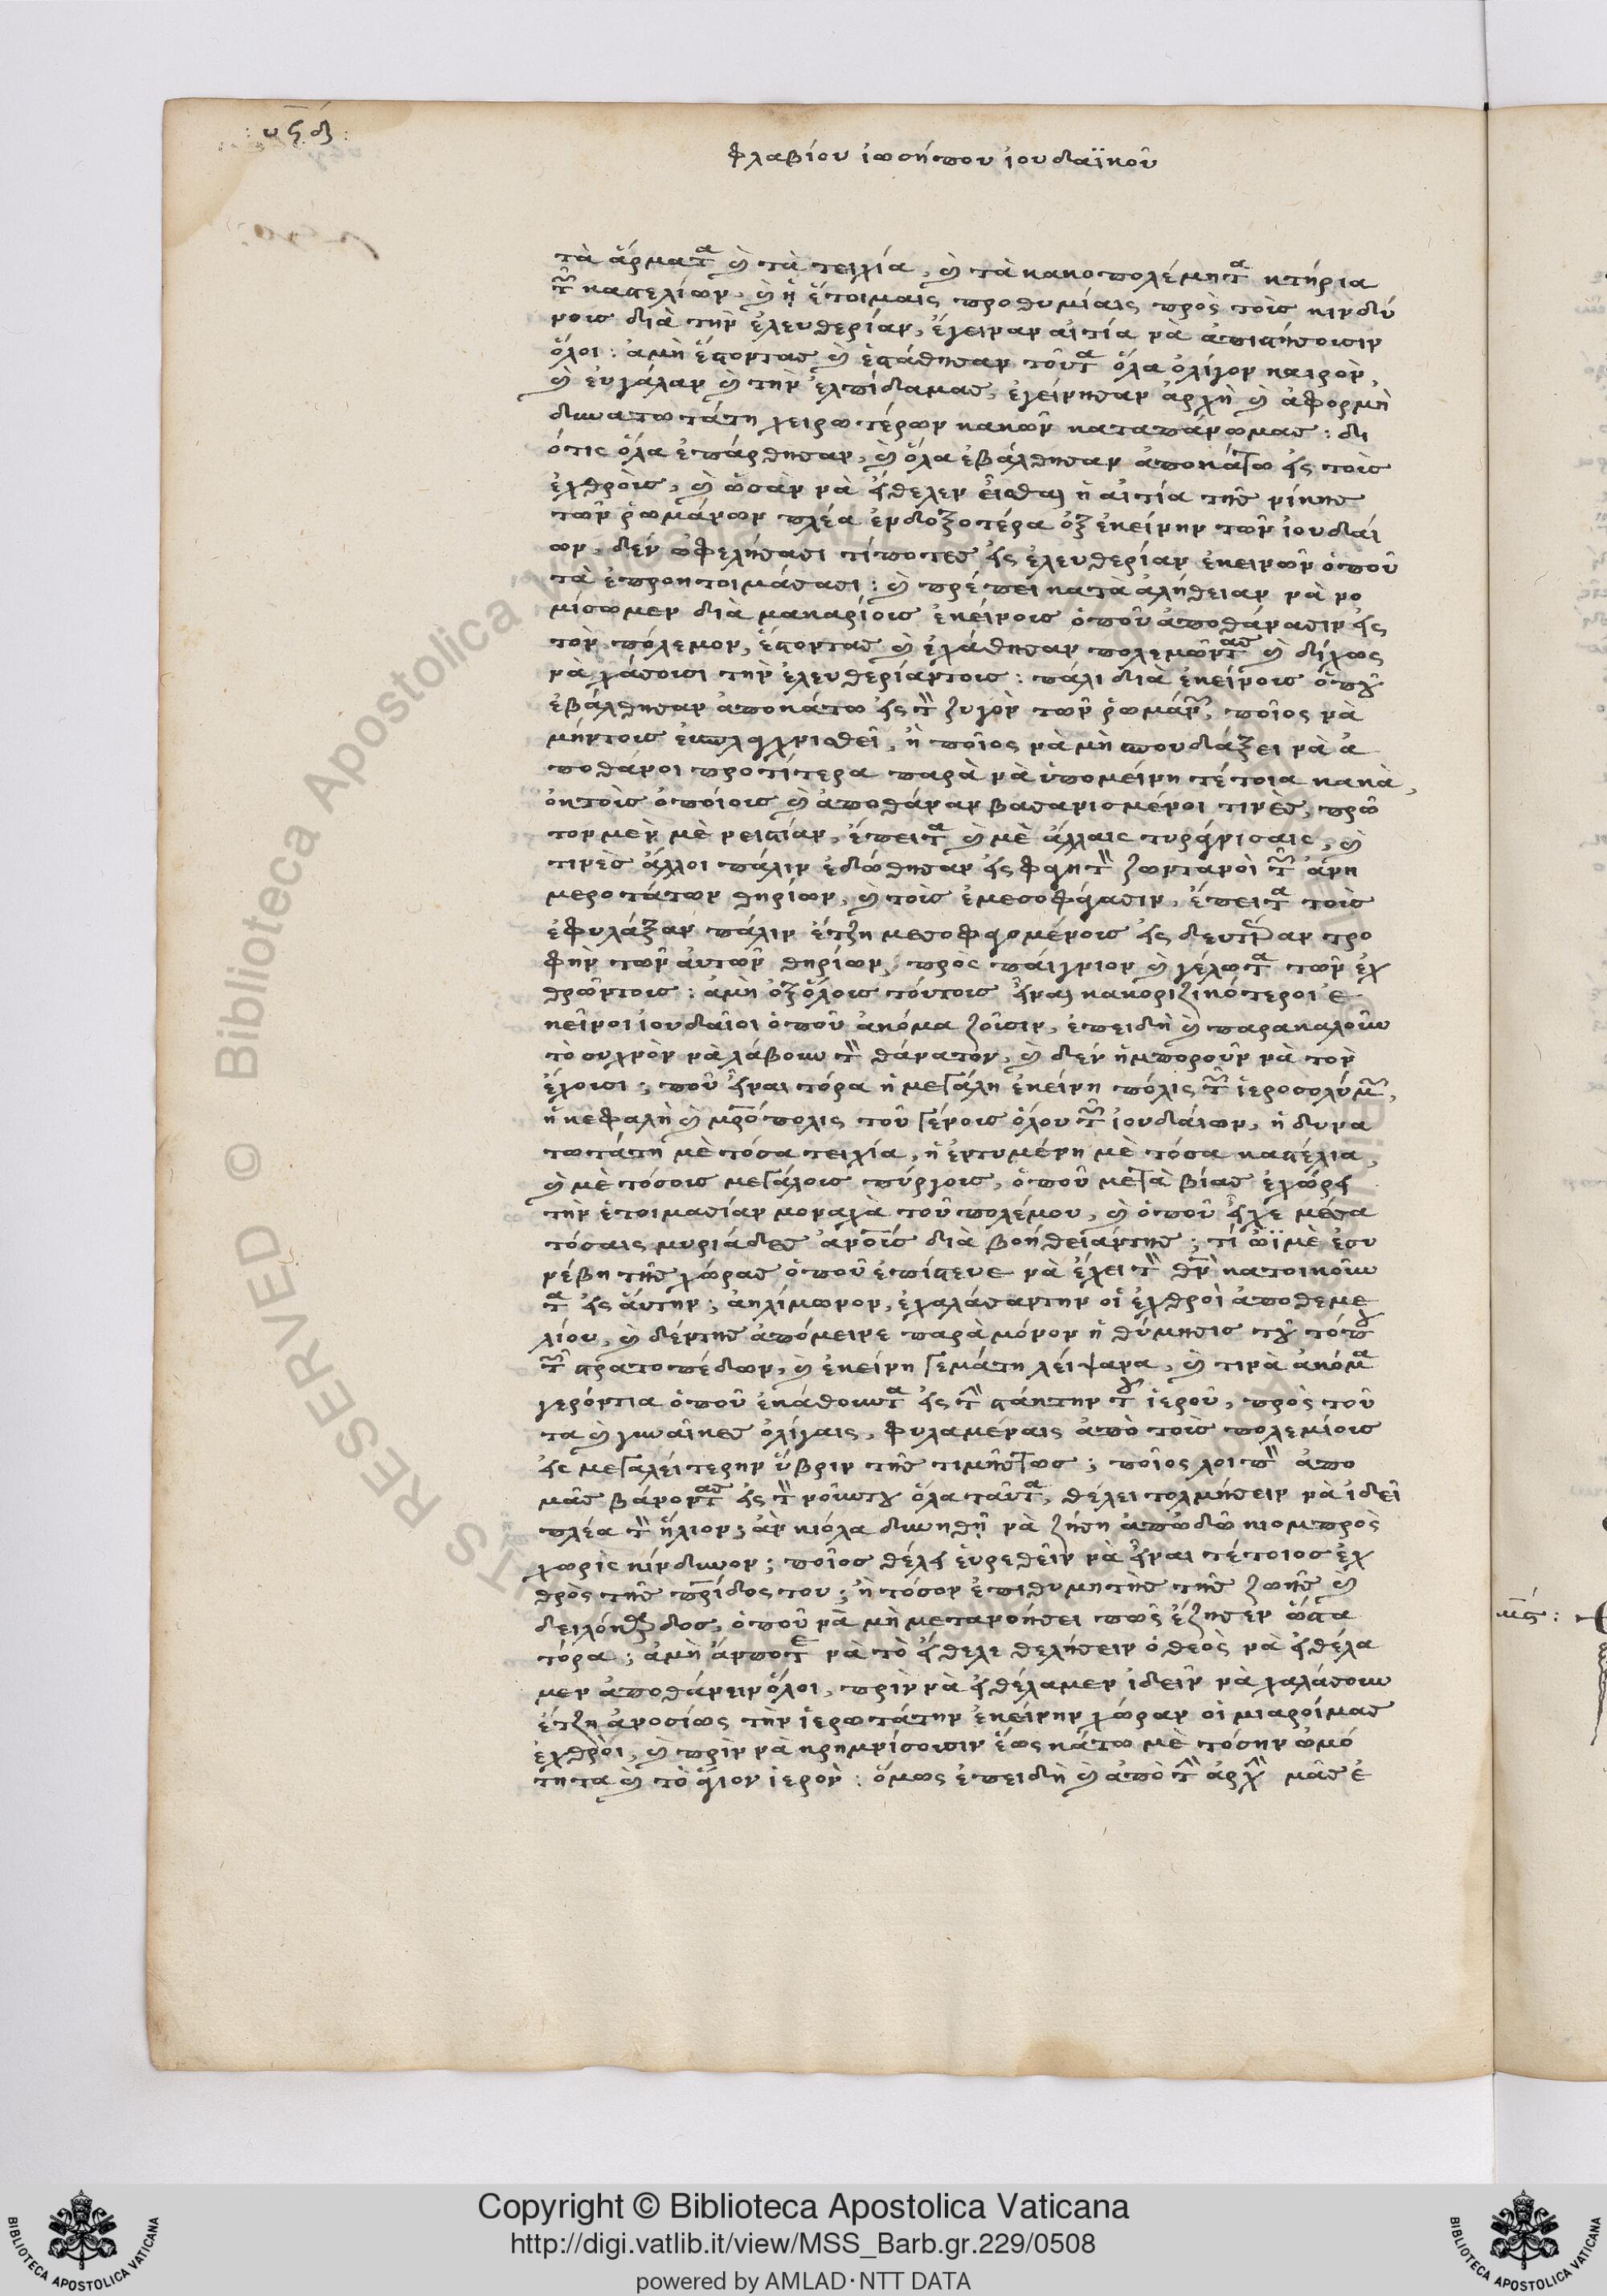 : υϟδ :
φλαβίου ἰωσήπου ἰουδαϊκοῦ
τὰ ἅρματα καὶ τὰ τειχία, καὶ τὰ κακοπολέμητα κτήρια
τῶν καστελίων, καὶ ᾑ ἕτοιμαις προθυμίαις πρὸς τοὺς κινδύ
νους διὰ τὴν ἐλευθερίαν, ἔγειναν αἰτία νὰ ἀπιστήσουσιν
ὅλοι: ἀμὴ ἔστοντας καὶ ἐστάθησαν τοῦτα ὅλα ὀλίγον καιρὸν,
καὶ εὐγάλαν καὶ τὴν ἐλπίδαμας, ἐγείνησαν ἀρχὴ καὶ ἀφορμὴ
δυνατωτάτη χειρωτέρων κακῶν καταπάνωμας: δι
ότις ὅλα ἐπάρθησαν, καὶ ὅλα ἐβάλθησαν ἀποκάτω εἰς τοὺς
ἐχθροὺς, καὶ ὡσὰν νὰ ἤθελεν εἶσθαι ἡ αἰτία τῆς νίκης
τῶν ῥωμάνων πλέα ἐνδοξοτέρα ὀξ ἐκείνην τῶν ἰουδαί
ων, δὲν ὠφελήσασι τίποτες εἰς ἐλευθερίαν ἐκεινῶν ὁποῦ
τὰ ἐπροητοιμάσασι: καὶ πρέπει κατὰ ἀλήθειαν νὰ νο
μίσωμεν διὰ μακαρίους ἐκείνους ὁποῦ ἀποθάνασιν εἰς
τὸν πόλεμον, ἔστοντας καὶ ἐχάθησαν πολεμῶντας καὶ δίχως
νὰ χάσουσι τὴν ἐλευθερίαντους: πάλι διὰ ἐκείνους ὁποῦ
ἐβάλθησαν ἀποκάτω εἰς τὸν ζυγὸν τῶν ῥωμάνων, ποῖος νὰ
μήντους ἐυσπλαχνισθεῖ, ἢ ποῖος νὰ μὴ σπουδάξει νὰ ἀ
ποθάνοι προτίτερα παρὰ νὰ ὑπομείνη τέτοια κακὰ,
ὀκτοὺς ὁποίους καὶ ἀποθάναν βασανισμένοι τινὲς, πρῶ
τον μὲν μὲ νειστίαν, ἔπειτα καὶ μὲ ἄλλαις τυράννισαις, καὶ
τινὲς ἄλλοι πάλιν ἐδώθησαν εἰς φαητὸν ζωντανοὶ τῶν ἀνη
μεροτάτων θηρίων, καὶ τοὺς ἐμεσοφάγασιν, ἔπειτα τοὺς
ἐφυλάξαν πάλιν ἔτζη μεσοφαομένους εἰς δευτέραν τρο
φὴν τῶν ἀυτῶν θηρίων, πρὸς πάιγνιον καὶ γέλωτα τῶν ἐχ
θρῶντους: ἀμὴ ὀξ ὅλους τούτους εἶναι κακοριζικότεροι ἐ
κεῖνοι ἰουδαῖοι ὁποῦ ἀκόμα ζοῦσιν, ἐπειδὴ καὶ παρακαλοῦν
τὸ συχνὸν νὰ λάβουν τὸν θάνατον, καὶ δὲν ἠμποροῦν νὰ τὸν
ἔχουσι; ποῦ εἶναι τόρα ἡ μεγάλη ἐκείνη πόλις τῶν ἱεροσολύμων,
ἡ κεφαλὴ καὶ μρόπολις τοῦ γένους ὅλου τῶν ἰουδαίων, ἡ δυνα
τωτάτη μὲ τόσα τειχία, ἡ ἐντυμένη μὲ τόσα καστέλια,
καὶ μὲ τόσους μεγάλους πύργους, ὁποῦ μετὰ βίας ἐχώρει
τὴν ἑτοιμασίαν μοναχὰ τοῦ πολέμου, καὶ ὁποῦ εἶχε μέσα
τόσαις μυριάδες ἀνοῦς διὰ βοήθειάντης; τί ὠϊμὲ ἐσυ
νέβη τῆς χώρας ὁποῦ ἐπίστευε νὰ ἔχει τὸν θν κατοικοῦν
τα εἰς ἄυτην; ἀηλίμωνον, ἐχαλάσαντην οἱ ἐχθροὶ ἀποθεμε
λίου, καὶ δέντης ἀπόμεινε παρὰ μόνον ἡ θύμησις τοῦ τόπου
τῶν στρατοπέδων, καὶ ἐκείνη γεμάτη λείψανα, καὶ τινὰ ἀκόμα
γερόντια ὁποῦ ἐκάθουντα εἰς τὴν στάκτην τοῦ ἱεροῦ, πρὸς τοῦ
τα καὶ γυναῖκες ὀλίγαις, φυλαμέναις ἀπὸ τοὺς πολεμίους
εἰς μεγαλείτερην ὕβριν τῆς τιμῆςτως; ποῖος λοιπὸν ἀπο
μᾶς βάνοντας εἰς τὸν νοῦντου ὅλα ταῦτα, θέλει τολμήσειν νὰ ἰδεῖ
πλέα τὸν ἥλιον; ἂν κιόλα δυνηθῇ νὰ ζήση ἀπῶδῶ κιομπρὸς
χωρὶς κίνδυνον; ποῖος θέλει ἑυρεθεῖν νὰ εἶναι τέτοιος ἐχ
θρὸς τῆς πρίδος του; ἢ τόσον ἐπιθυμητὴς τῆς ζωῆς καὶ
ὁποῦ νὰ μὴ μετανοήσει πῶς ἔζησεν ὥστα
τόρα; ἀμὴ ἄνποτε νὰ τὸ ἤθελε θελήσειν ὁ θεὸς νὰ ἠθέλα
μεν ἀποθάνειν ὅλοι, πρὶν νὰ ἠθέλαμεν ἰδεῖν νὰ χαλάσουν
ἔτζη ἀνοσίως τὴν ἱερωτάτην ἐκείνην χώραν οἱ μιαροίμας
ἐχθροὶ, καὶ πρὶν νὰ κρημνίσουσιν ἕως κάτω μὲ τόσην ὠμό
τητα καὶ τὸ ἅγιον ἱερὸν: ὅμως ἐπειδὴ καὶ ἀπὸ τὴν ἀρχὴν μᾶς ἐ
Copyright © Biblioteca Apostolica Vaticana
http://digi.vatlib.it/view/MSS_Barb.gr.229/0508
powered by AMLAD·NTT DATA